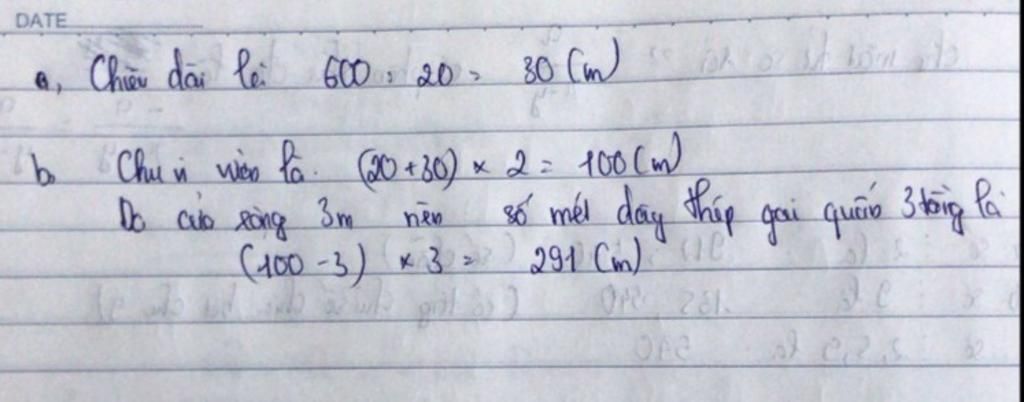 DATE
a, Chiều dài là: 600 : 20 = 30 (m)
b, Chu vi vườn là: (20 + 30) × 2 = 100 (m)
Do cửa rộng 3m nên số mét dây thép gai quấn 3 tầng là
(100 - 3) × 3 = 291 (m)